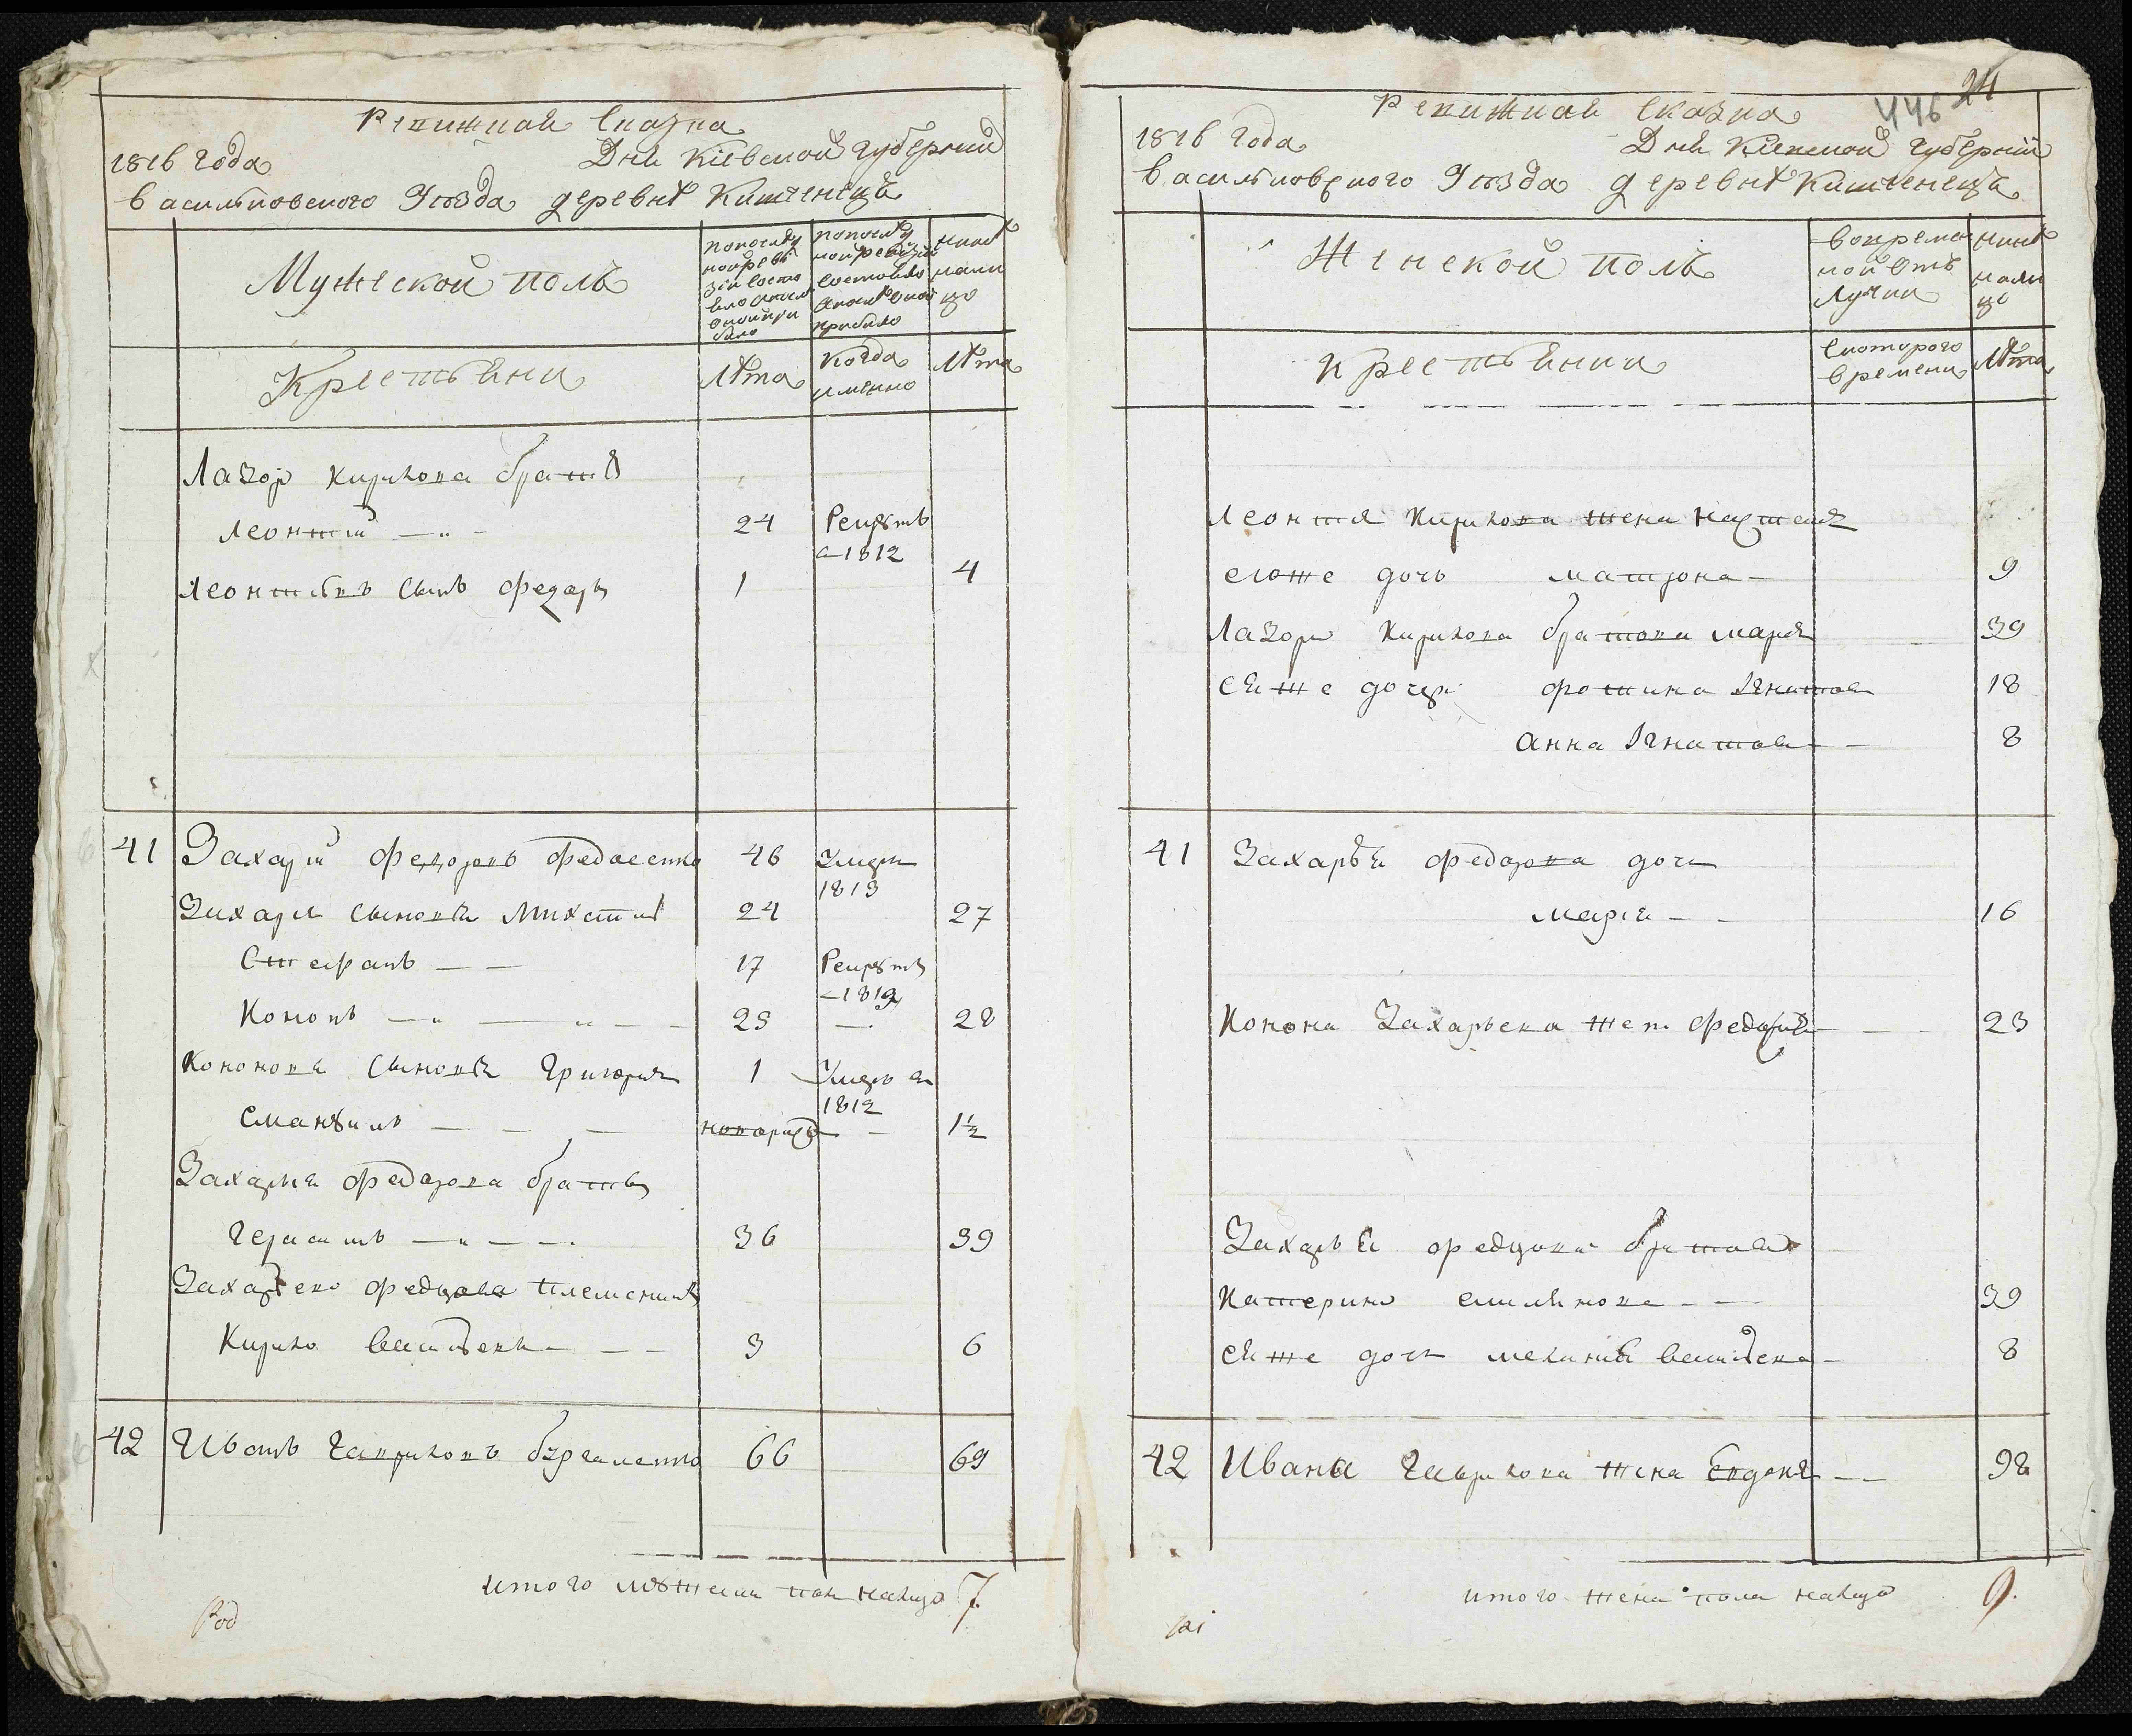 Ревижная Сказка
1816 года Дня Кіевской губерніи
Васильковского Уѣзда деревнѣ Кищенецъ
Мужеской полъ
попослѣд
ной реви
зіи состо
яло
попослѣд
ной ревизіи
состояло
нынѣ
нали
цо
Крестьяни
Лѣта
когда
именно
Лѣта
Лазор Кирилова братъ
Леонтий 24 Рекрутъ
1812
Леонтьевъ сынъ Федоръ 1 4
41 Захарій Федоровъ Федосенко 46 Умеръ
1813
Захария сыновья 24 27
Стефанъ 17 Рекрутъ
1812
Кононъ 25 28
Кононова сыновья Григорія 1 Умеръ
1812
Емануилъ новорожд 1½
Захария Федорова братъ
Герасимъ 36 39
Федорова племенникъ
Кирило Васильевъ 3 6
42 Иванъ Гавриловъ 66 69
итого мужеска пола налицо 7
24
446
Ревижная Сказка
1816 Года Дня Кіевской губерніи
Васильковского Уѣзда деревнѣ Кищенецъ
Женской полъ
вовремен
ной отъ
лучки
нынѣ
нали
цо
Крестьянки
скоторого
времени
Лѣта
Леонтия Кирилова жена Настасия
егоже дочь Матрона 9
Лазора Кирилова братова Мария 39
еяже дочери Фотина Игнатова 18
Анна Игнатова 8
41 Захарья Федорова дочь
Мария 16
Конона Захарьева жена Федосия 23
Захарья Федорова братова
Катерина Емилянова 39
еяже дочь Мелания Васильева 8
42 Ивана Гаврилова жена Евдокия 98
итого жена пола налицо 9.